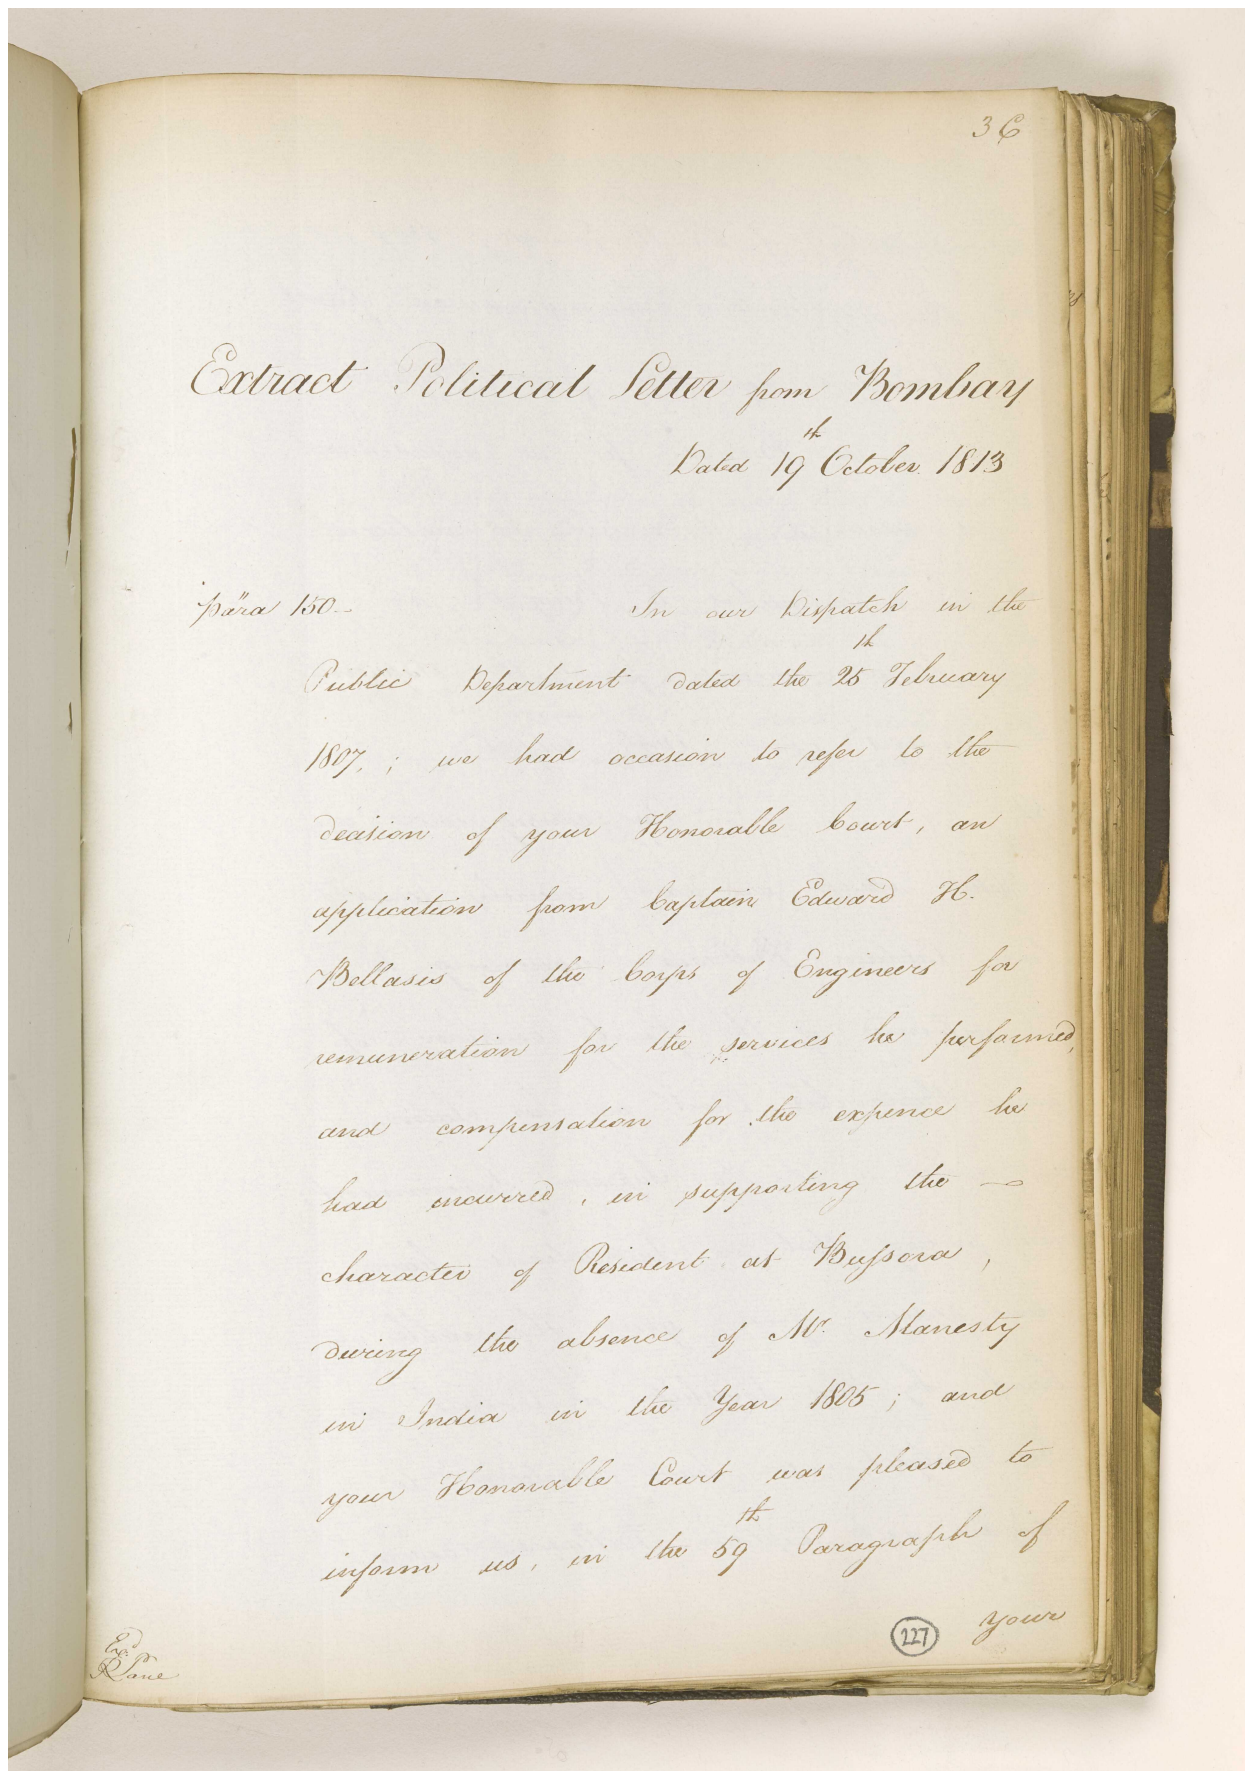 36
Extract Political Letter from Bombay
Dated 19th October 1813
para 150 - In our Dispatch in the
Public Department dated the 25th February
1807, ; we had occasion to refer to the
decision of your Honorable Court, an
application from Captain Edward H.
Bellasis of the Corps of Engineers for
remuneration for the services he performed,
and compensation for the expence he
had incurred, in supporting the -
character of Resident at Bussora,
during the absence of Mr. Manesty
in India in the Year 1805; and
your Honorable Court was pleased to
inform us, in the 59th Paragraph of
your
227
Exd